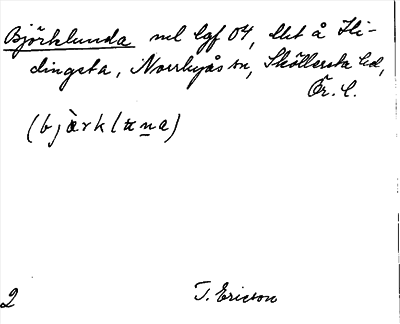 Björklunda vel lgf 04, det å Hi-
dingsta, Norrbyås sn, Sköllersta hd,
Ör. l.
(bjàrklʉna)
2
T. Ericson